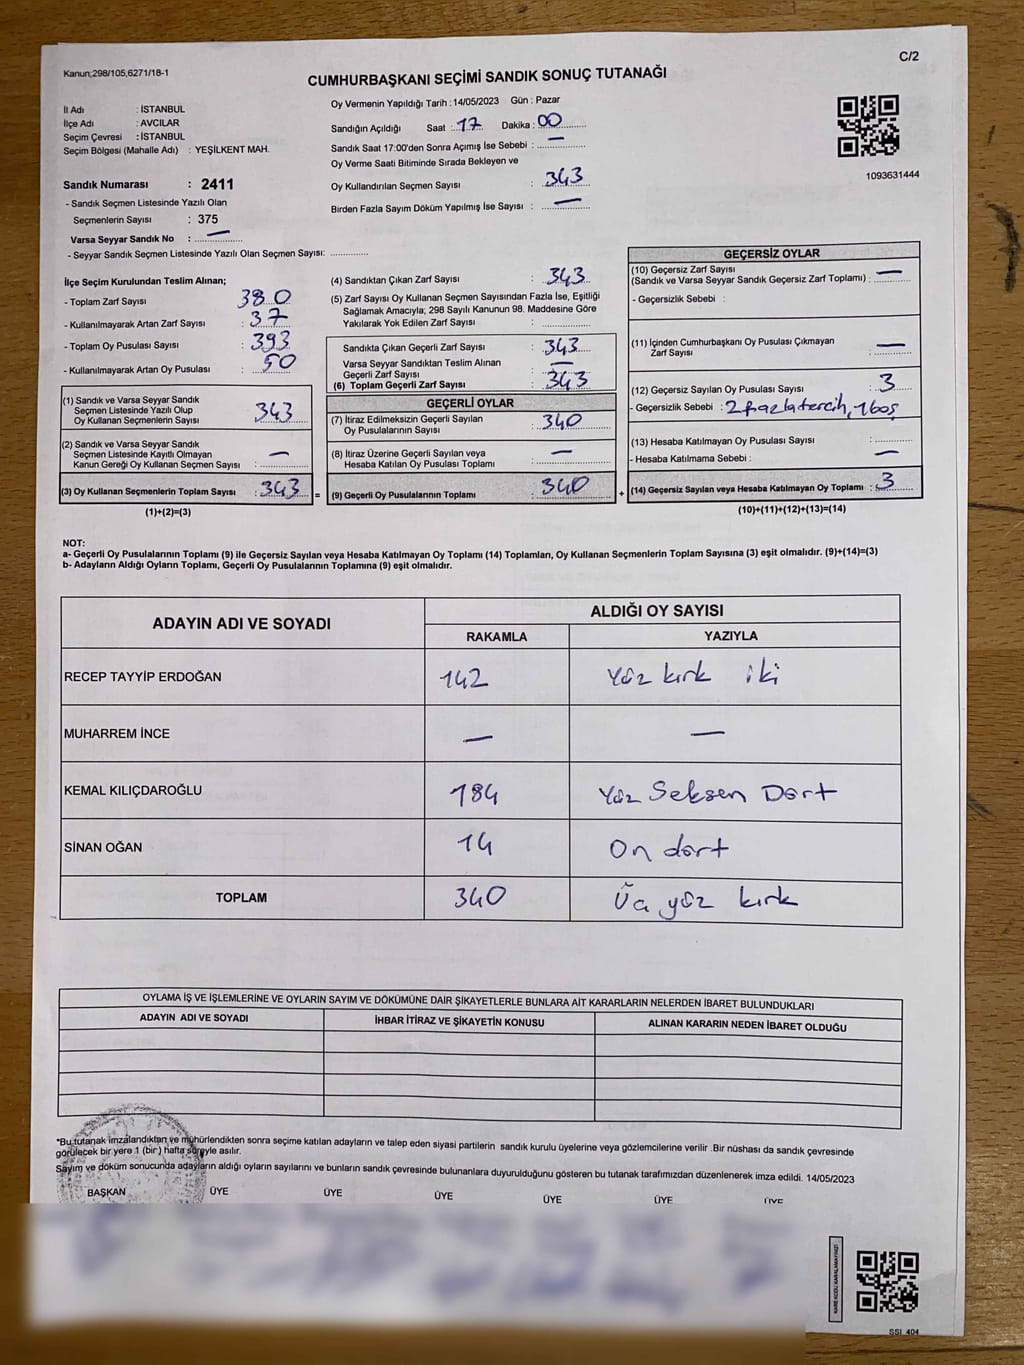 Kanun;298/105,6271/18-1
C/2
CUMHURBAŞKANI SEÇİMİ SANDIK SONUÇ TUTANAĞI
İl Adı : İSTANBUL
İlçe Adı : AVCILAR
Seçim Çevresi : İSTANBUL
Seçim Bölgesi (Mahalle Adı) : YEŞİLKENT MAH.
Sandık Numarası : 2411
- Sandık Seçmen Listesinde Yazılı Olan
Seçmenlerin Sayısı : 375
Varsa Seyyar Sandık No : —
- Seyyar Sandık Seçmen Listesinde Yazılı Olan Seçmen Sayısı: ..............
Oy Vermenin Yapıldığı Tarih : 14/05/2023 Gün : Pazar
Sandığın Açıldığı Saat : 17 Dakika : 00
Sandık Saat 17:00'den Sonra Açımış İse Sebebi : —
Oy Verme Saati Bitiminde Sırada Bekleyen ve
Oy Kullandırılan Seçmen Sayısı : 343
Birden Fazla Sayım Döküm Yapılmış İse Sayısı : —
1093631444
İlçe Seçim Kurulundan Teslim Alınan;
- Toplam Zarf Sayısı : 380
- Kullanılmayarak Artan Zarf Sayısı : 37
- Toplam Oy Pusulası Sayısı : 393
- Kullanılmayarak Artan Oy Pusulası : 50
(1) Sandık ve Varsa Seyyar Sandık
Seçmen Listesinde Yazılı Olup
Oy Kullanan Seçmenlerin Sayısı : 343
(2) Sandık ve Varsa Seyyar Sandık
Seçmen Listesinde Kayıtlı Olmayan
Kanun Gereği Oy Kullanan Seçmen Sayısı : —
(3) Oy Kullanan Seçmenlerin Toplam Sayısı : 343 =
(1)+(2)=(3)
(4) Sandıktan Çıkan Zarf Sayısı : 343
(5) Zarf Sayısı Oy Kullanan Seçmen Sayısından Fazla İse, Eşitliği
Sağlamak Amacıyla; 298 Sayılı Kanunun 98. Maddesine Göre
Yakılarak Yok Edilen Zarf Sayısı : ..............
Sandıkta Çıkan Geçerli Zarf Sayısı : 343
Varsa Seyyar Sandıktan Teslim Alınan
Geçerli Zarf Sayısı : —
(6) Toplam Geçerli Zarf Sayısı : 343
GEÇERLİ OYLAR
(7) İtiraz Edilmeksizin Geçerli Sayılan
Oy Pusulalarının Sayısı : 340
(8) İtiraz Üzerine Geçerli Sayılan veya
Hesaba Katılan Oy Pusulası Toplamı : —
(9) Geçerli Oy Pusulalarının Toplamı : 340 +
GEÇERSİZ OYLAR
(10) Geçersiz Zarf Sayısı
(Sandık ve Varsa Seyyar Sandık Geçersiz Zarf Toplamı) : —
- Geçersizlik Sebebi :
(11) İçinden Cumhurbaşkanı Oy Pusulası Çıkmayan
Zarf Sayısı : —
(12) Geçersiz Sayılan Oy Pusulası Sayısı : 3
- Geçersizlik Sebebi : 2 fazla tercih, 1 boş
(13) Hesaba Katılmayan Oy Pusulası Sayısı : ..............
- Hesaba Katılmama Sebebi : —
(14) Geçersiz Sayılan veya Hesaba Katılmayan Oy Toplamı : 3
(10)+(11)+(12)+(13)=(14)
NOT:
a- Geçerli Oy Pusulalarının Toplamı (9) ile Geçersiz Sayılan veya Hesaba Katılmayan Oy Toplamı (14) Toplamları, Oy Kullanan Seçmenlerin Toplam Sayısına (3) eşit olmalıdır. (9)+(14)=(3)
b- Adayların Aldığı Oyların Toplamı, Geçerli Oy Pusulalarının Toplamına (9) eşit olmalıdır.
ADAYIN ADI VE SOYADI
ALDIĞI OY SAYISI
RAKAMLA YAZIYLA
RECEP TAYYİP ERDOĞAN 142 Yüz kırk iki
MUHARREM İNCE — —
KEMAL KILIÇDAROĞLU 184 Yüz Seksen Dört
SİNAN OĞAN 14 On dört
TOPLAM 340 Üç yüz kırk
OYLAMA İŞ VE İŞLEMLERİNE VE OYLARIN SAYIM VE DÖKÜMÜNE DAİR ŞİKAYETLERLE BUNLARA AİT KARARLARIN NELERDEN İBARET BULUNDUKLARI
ADAYIN ADI VE SOYADI İHBAR İTİRAZ VE ŞİKAYETİN KONUSU ALINAN KARARIN NEDEN İBARET OLDUĞU
*Bu tutanak imzalandıktan ve mühürlendikten sonra seçime katılan adayların ve talep eden siyasi partilerin sandık kurulu üyelerine veya gözlemcilerine verilir .Bir nüshası da sandık çevresinde
görülecek bir yere 1 (bir) hafta süreyle asılır.
Sayım ve döküm sonucunda adayların aldığı oyların sayılarını ve bunların sandık çevresinde bulunanlara duyurulduğunu gösteren bu tutanak tarafımızdan düzenlenerek imza edildi. 14/05/2023
BAŞKAN ÜYE ÜYE ÜYE ÜYE ÜYE ÜYE
KARE KODU KARALAMAYINIZ!
SSI_404